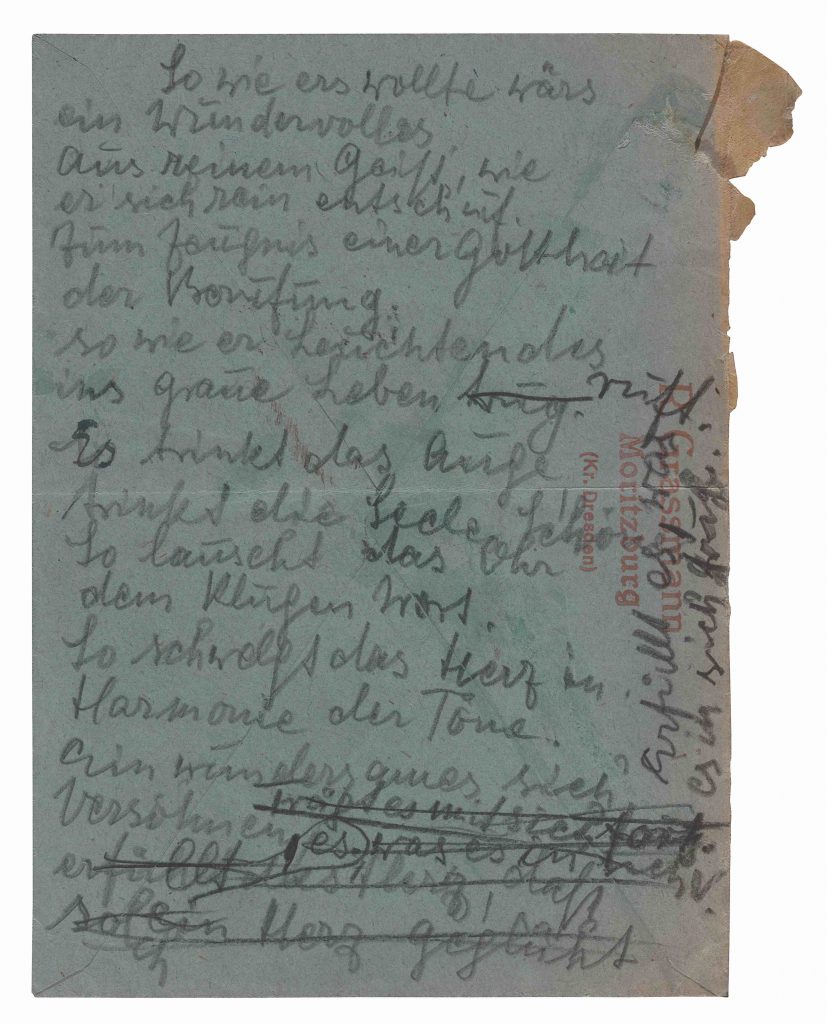 So wie ers wollte wärs
ein Wundervolles
Aus reinem Geist, wie
er sich rein entschuf.
Zum Zeugnis einer Gottheit
der Berufung.
so wie er Leuchtendes
ins graue Leben trug. ruft.
Es trinkt das Auge
trinkt die Seele,
So lauscht das Ohr
dem Klugen Wort.
So schwelgt das Herz in
Harmonie der Töne.
ein wundersames sich
Versöhnen
trägt es mit sich fort.
es was es
erfüllt das Herz, daß
solch ein Herz geglüht
erfüllt es, was
es in sich
R. Grassmann
Moritzburg
(Kr. Dresden)